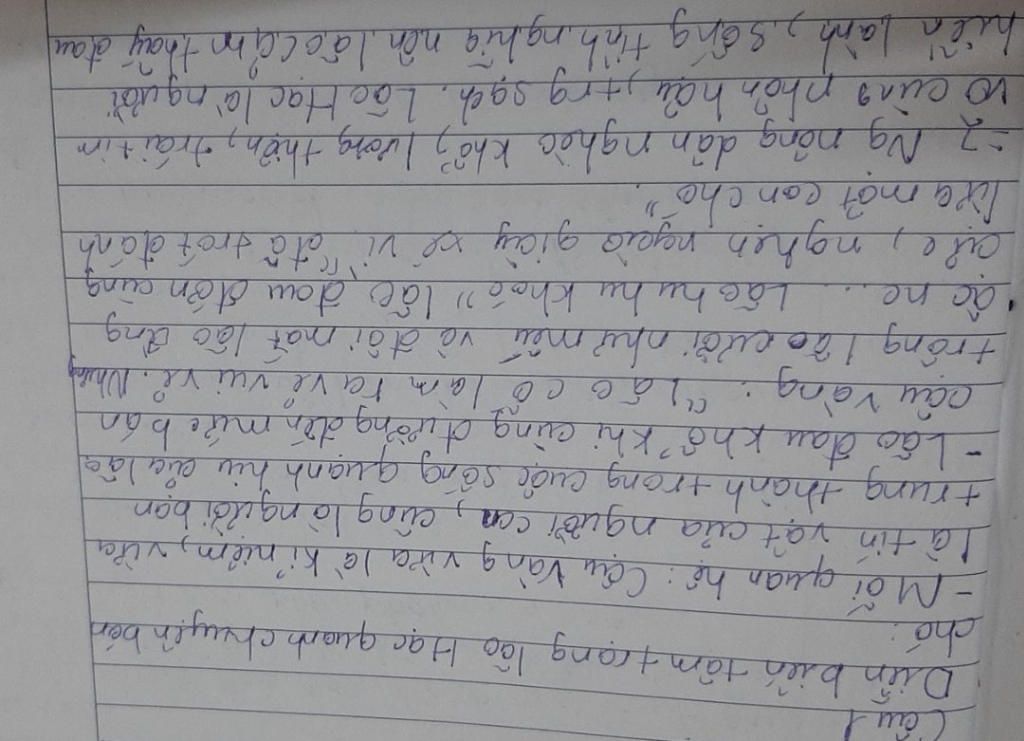 Câu 1
Diễn biến tâm trạng lão Hạc quanh chuyện bán
chó:
- Mối quan hệ: Cậu Vàng vừa là kỉ niệm, vừa
là tín vật của người con, cũng là người bạn
trung thành trong cuộc sống quạnh hiu của lão
- Lão đau khổ khi cùng đường đến mức bán
cậu Vàng: "Lão cố làm ra vẻ vui vẻ. Nhưng
trông lão cười như mếu và đôi mắt lão ầng
ậc nc... Lão hu hu khóc" lão đau đớn cùng
cực, nghẹn ngào giày xé vì "đã trót đánh
lừa một con chó".
=> Ng nông dân nghèo khổ, lương thiện, trái tim
vô cùng nhân hậu, trg sạch. Lão Hạc là người
hiền lành, sống tình nghĩa nên lão cảm thấy đau